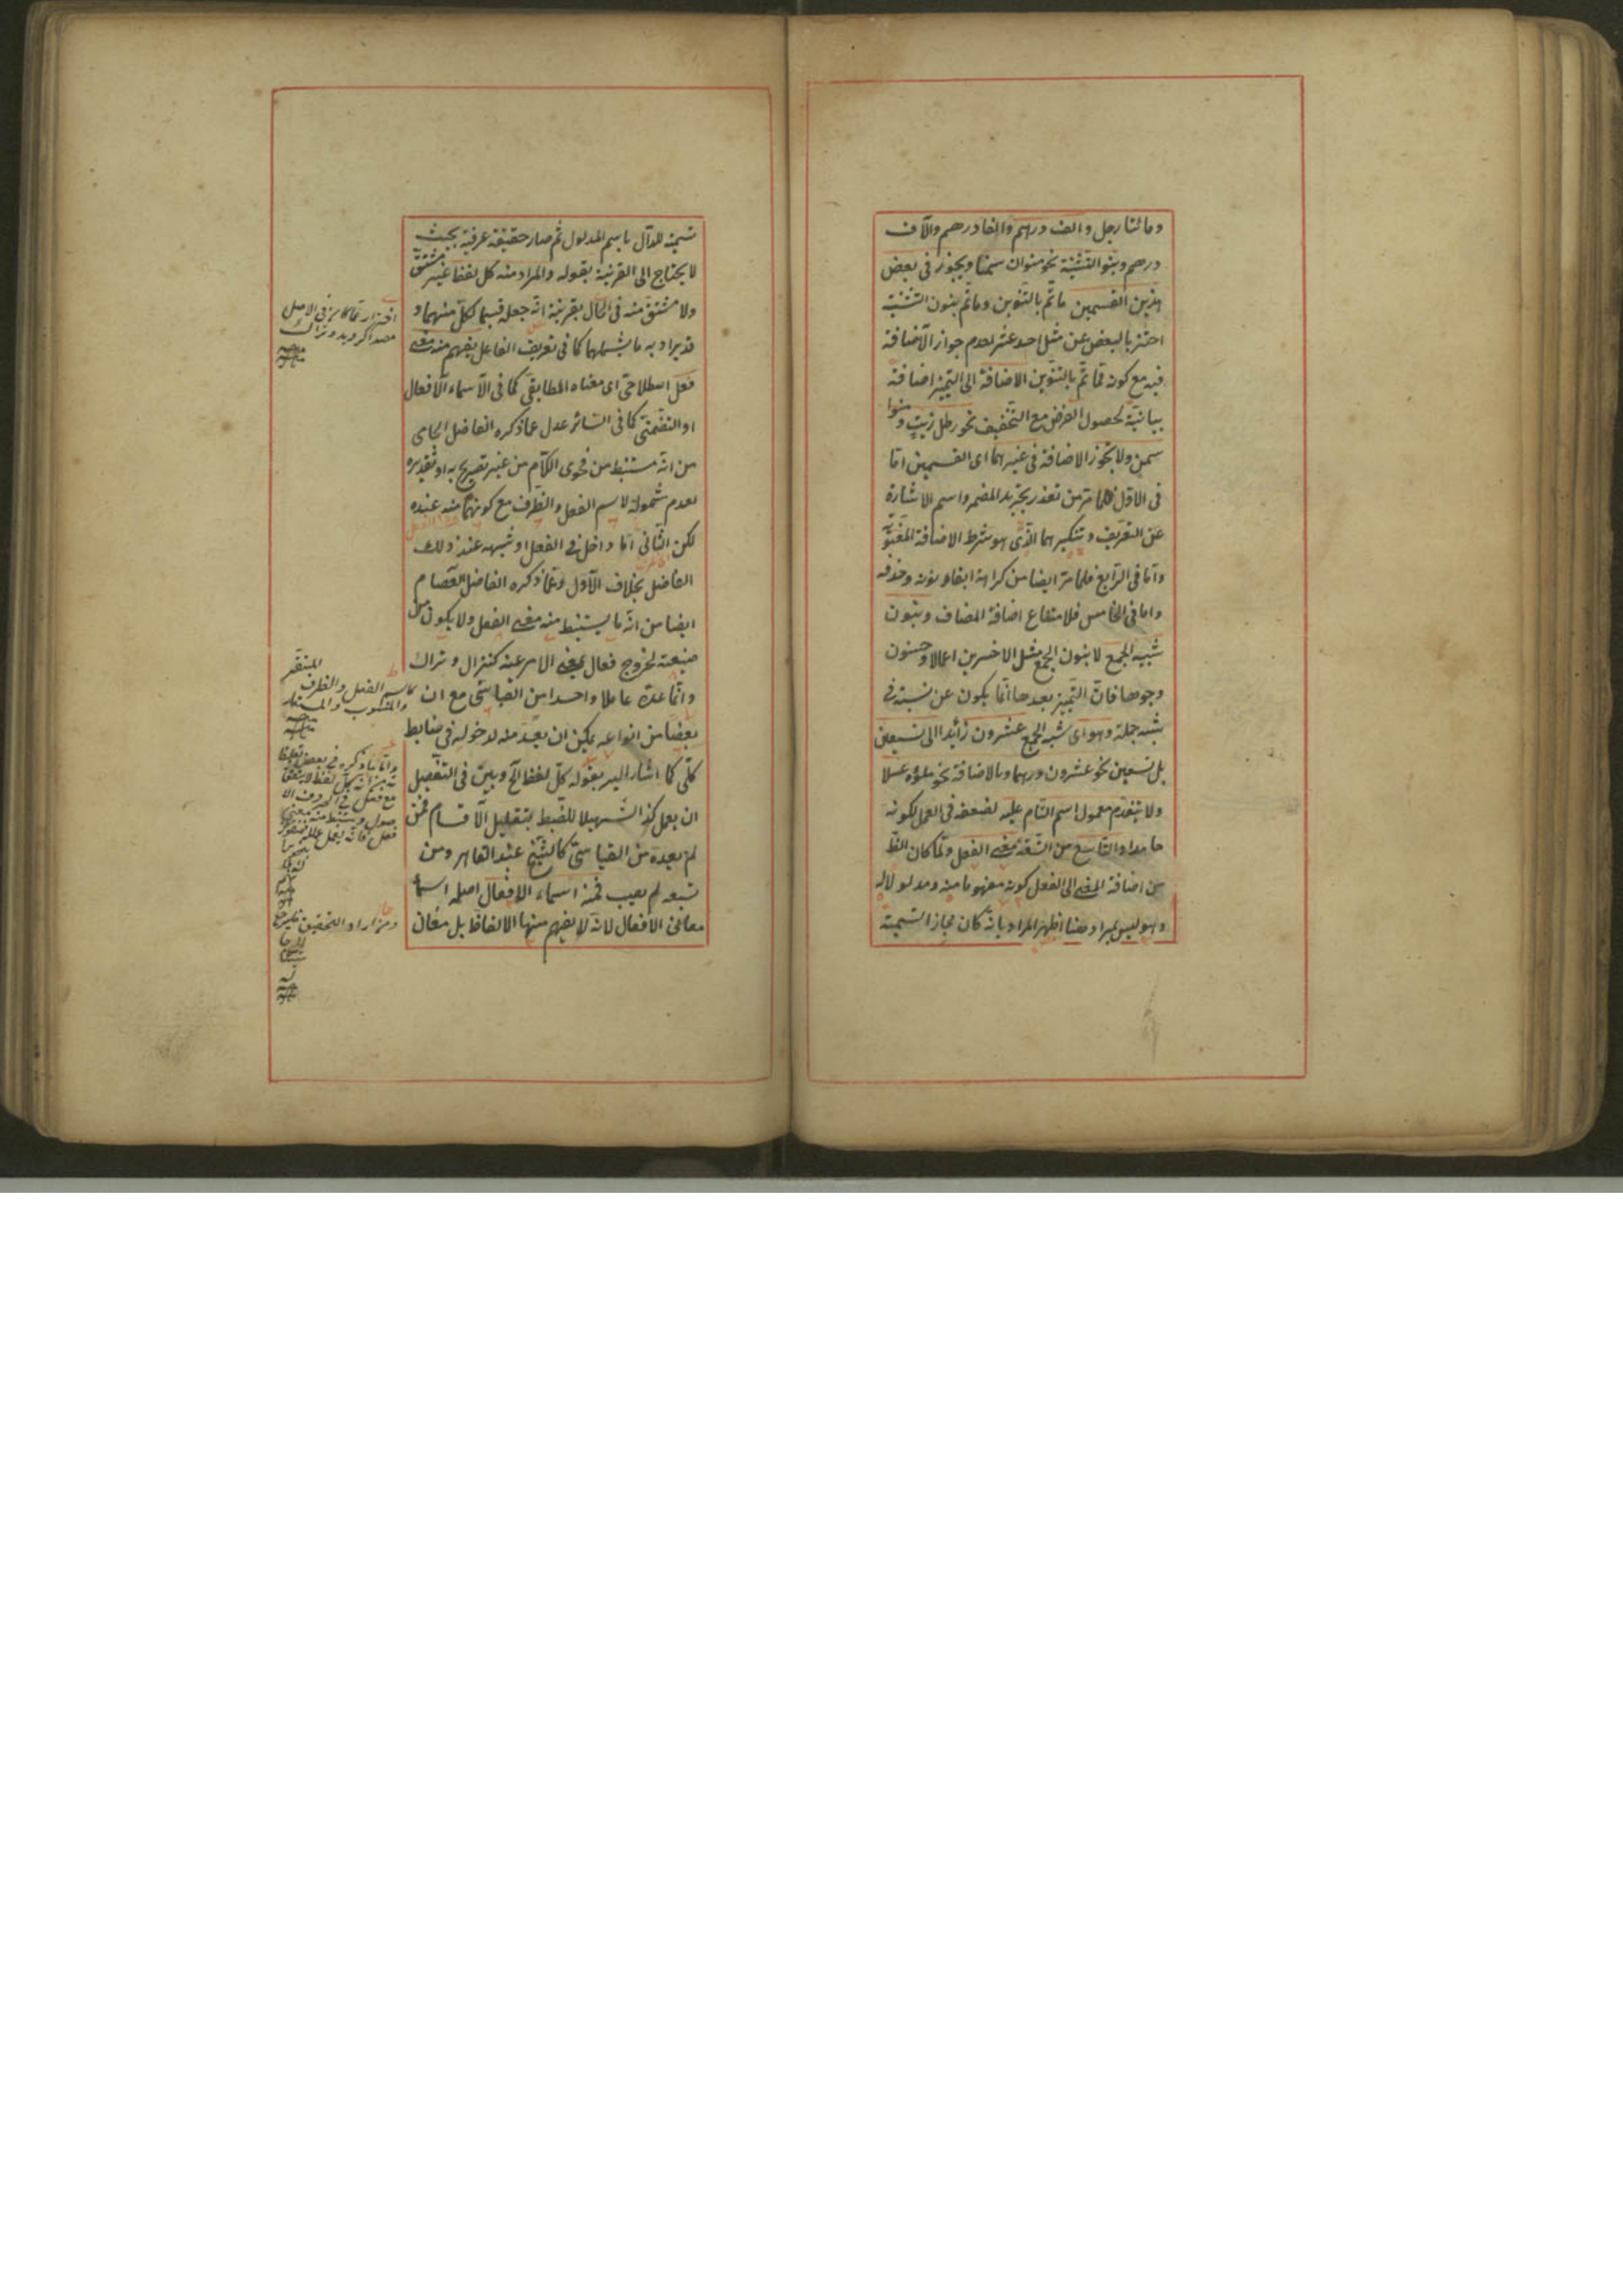 ومائتا رجل والف درهم والفا درهم والآف
درهم وبنو التثنية نحو منوان سمنا ويجوز في بعض
هذين القسمين ما تم بالتنوين وما تم بنون التثنية
احترز بالبعض عن مثل احد عشر لعدم جواز الاضافة
فيه مع كونه مما تم بالتنوين الاضافة الى التميز اضافة
بيانية لحصول الغرض مع التخفيف نحو رطل زيت ومنوا
سمن ولا يجوز الاضافة في غيرهما اى القسمين اما
فى الاول فلما مر من تعذر تجريد المضمر واسم الاشارة
عن التعريف وتنكيرهما الذى هو شرط الاضافة المعنوية
واما فى الرابع فلما مر ايضا من كراهة ابقاء نونه وحذفه
واما فى الخامس فلامتناع اضافة المضاف وبنون
شبيه الجمع لا بنون الجمع مثل الاخسرين اعمالا وحسنون
وجوها فان التميز بعدها انما يكون عن نسبة فى
شبه جملة وهو اى شبه الجمع عشرون زائدا الى تسعين
بل تسعين نحو عشرون درهما وبالاضافة نحو ملؤه عسلا
ولا يتقدم معمول اسم التام عليه لضعفه فى العمل لكونه
جامدا والتاسع من التسعة معنى الفعل ولما كان الظ
من اضافة المعنى الى الفعل كونه مفهوما منه ومدلولا له
وهو ليس بمراد هنا اظهر المراد بانه كان مجازا لتسمية
تسمية للدال باسم المدلول ثم صار حقيقة عرفية بحيث
لا يحتاج الى القرينة بقوله والمراد منه كل لفظ غير مشتق
ولا مشتق منه فى الحال بقرينة انه جعله قسيما لكل منهما و
قد يراد به ما يشملهما كما فى تعريف الفاعل يفهم منه معنى
فعل اصطلاحى اى معناه المطابقى كما فى الاسماء الافعال
او التضمنى كما فى السائر عدل عما ذكره الفاضل الجامى
من انه مستنبط من فحوى الكلام من غير تصريح به او تقديره
لعدم شموله لاسم الفعل والظرف مع كونهما منه عنده
لكن الثانى اما داخل فى الفعل او شبهه عند ذلك
الفاضل بخلاف الاول وعما ذكره الفاضل العصام
ايضا من انه ما يستنبط منه معنى الفعل ولا يكون من
صيغته لخروج فعال بمعنى الامر عنه كنزال وتراك
وانما عده عاملا واحدا من القياسى مع ان
بعضا من انواعه يمكن ان يعد منه لدخوله فى ضابط
كلى كما اشار اليه بقوله كل لفظ الخ وبين فى التفصيل
ان يعمل كذا تسهيلا للضبط بتقليل الاقسام فمن
لم يعده من القياسى كالشيخ عبد القاهر ومن
تبعه لم يصب فمنه اسماء الافعال اصله اسماء
معانى الافعال لانه لا يفهم منها الالفاظ بل معان
احتراز عما كان فى الاصل
مصدرا كرويد وتراك
كاسم الفعل والظرف
والمنسوب والمستعار
واما ما ذكره فى بعض